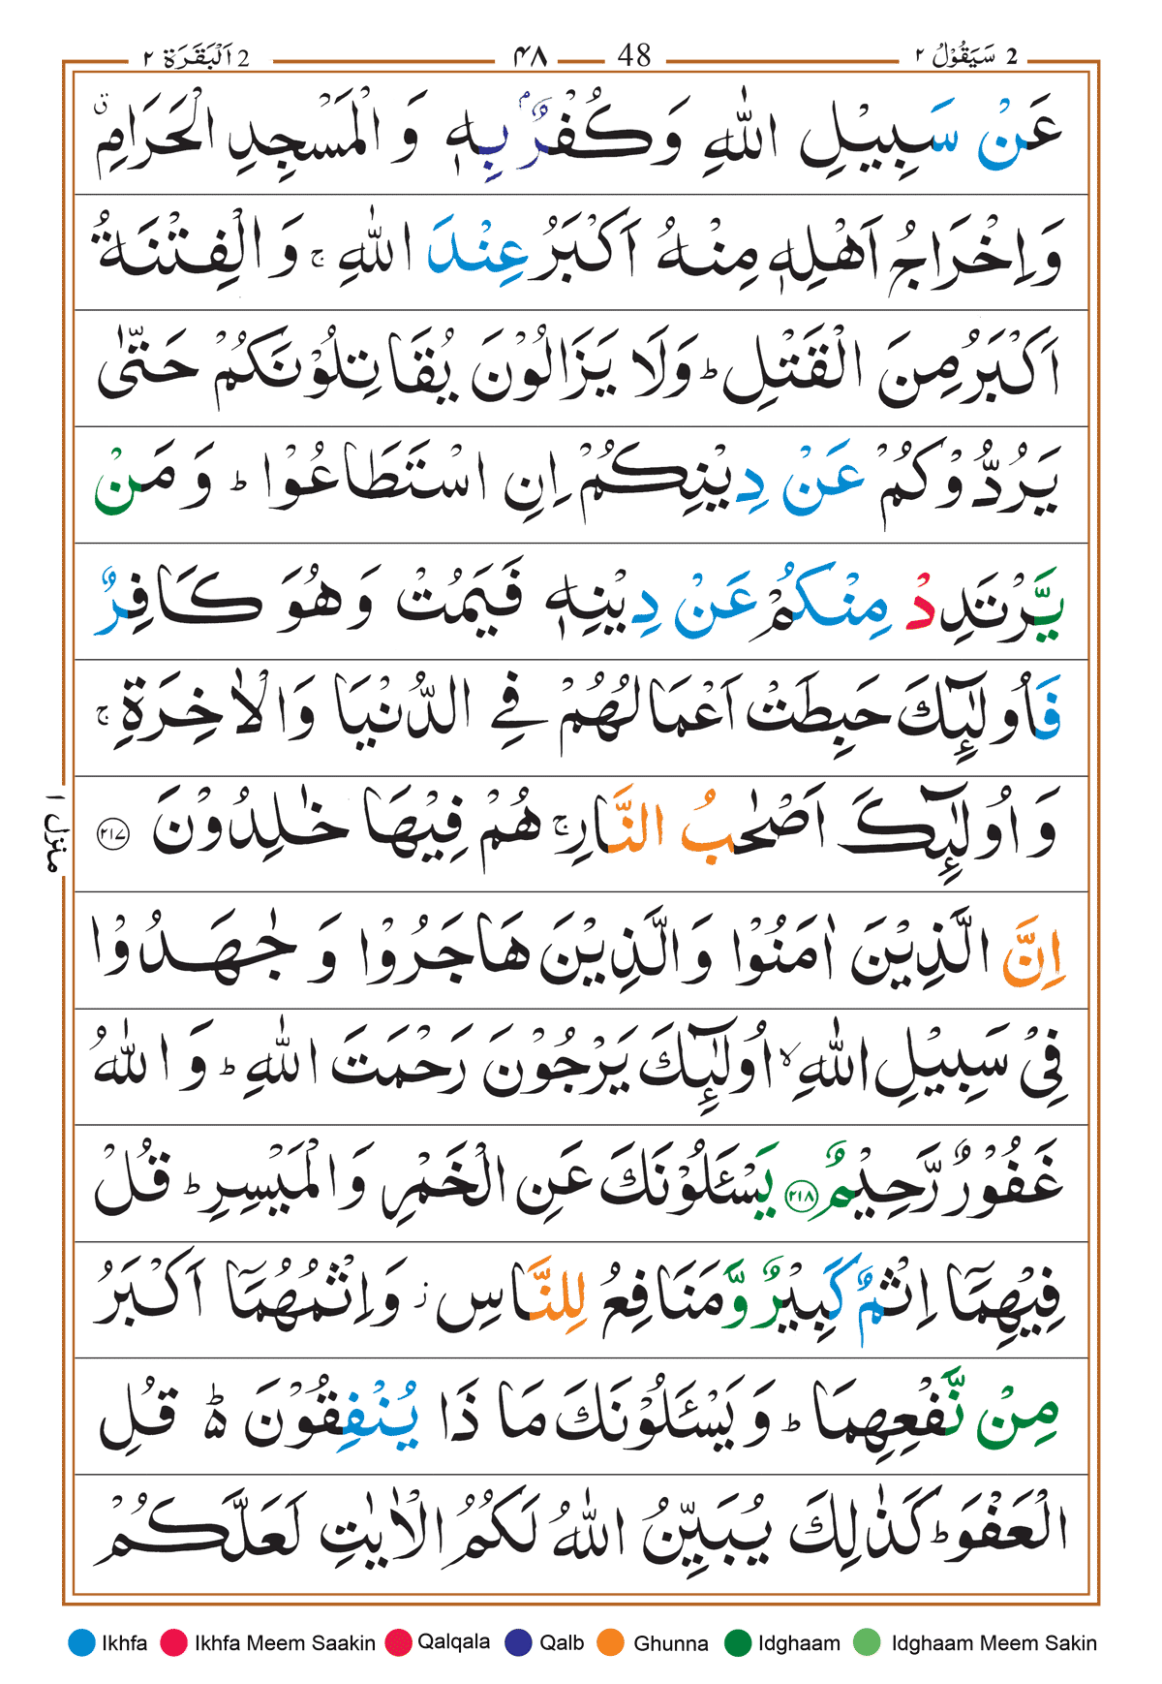 2 اَلْبَقَرَة ٢ ۴۸ 48 2 سَيَقُوْلُ ٢
عَنْ سَبِيْلِ اللّٰهِ وَكُفْرٌۢ بِهٖ وَ الْمَسْجِدِ الْحَرَامِ ۗ
وَاِخْرَاجُ اَهْلِهٖ مِنْهُ اَكْبَرُ عِنْدَ اللّٰهِ ۚ وَ الْفِتْنَةُ
اَكْبَرُ مِنَ الْقَتْلِ ؕ وَلَا يَزَالُوْنَ يُقَاتِلُوْنَكُمْ حَتّٰى
يَرُدُّوْكُمْ عَنْ دِيْنِكُمْ اِنِ اسْتَطَاعُوْا ؕ وَ مَنْ
يَّرْتَدِدْ مِنْكُمْ عَنْ دِيْنِهٖ فَيَمُتْ وَ هُوَ كَافِرٌ
فَاُولٰٓئِكَ حَبِطَتْ اَعْمَالُهُمْ فِي الدُّنْيَا وَالْاٰخِرَةِ ۚ
وَ اُولٰٓئِكَ اَصْحٰبُ النَّارِ ۚ هُمْ فِيْهَا خٰلِدُوْنَ ٢١٧
اِنَّ الَّذِيْنَ اٰمَنُوْا وَالَّذِيْنَ هَاجَرُوْا وَ جٰهَدُوْا
فِيْ سَبِيْلِ اللّٰهِ ۙ اُولٰٓئِكَ يَرْجُوْنَ رَحْمَتَ اللّٰهِ ؕ وَ اللّٰهُ
غَفُوْرٌ رَّحِيْمٌ ٢١٨ يَسْـَٔلُوْنَكَ عَنِ الْخَمْرِ وَالْمَيْسِرِ ؕ قُلْ
فِيْهِمَاۤ اِثْمٌ كَبِيْرٌ وَّمَنَافِعُ لِلنَّاسِ ؗ وَاِثْمُهُمَاۤ اَكْبَرُ
مِنْ نَّفْعِهِمَا ؕ وَ يَسْـَٔلُوْنَكَ مَا ذَا يُنْفِقُوْنَ ۬ؕ قُلِ
الْعَفْوَ ؕ كَذٰلِكَ يُبَيِّنُ اللّٰهُ لَكُمُ الْاٰيٰتِ لَعَلَّكُمْ
منزل ١
Ikhfa Ikhfa Meem Saakin Qalqala Qalb Ghunna Idghaam Idghaam Meem Sakin